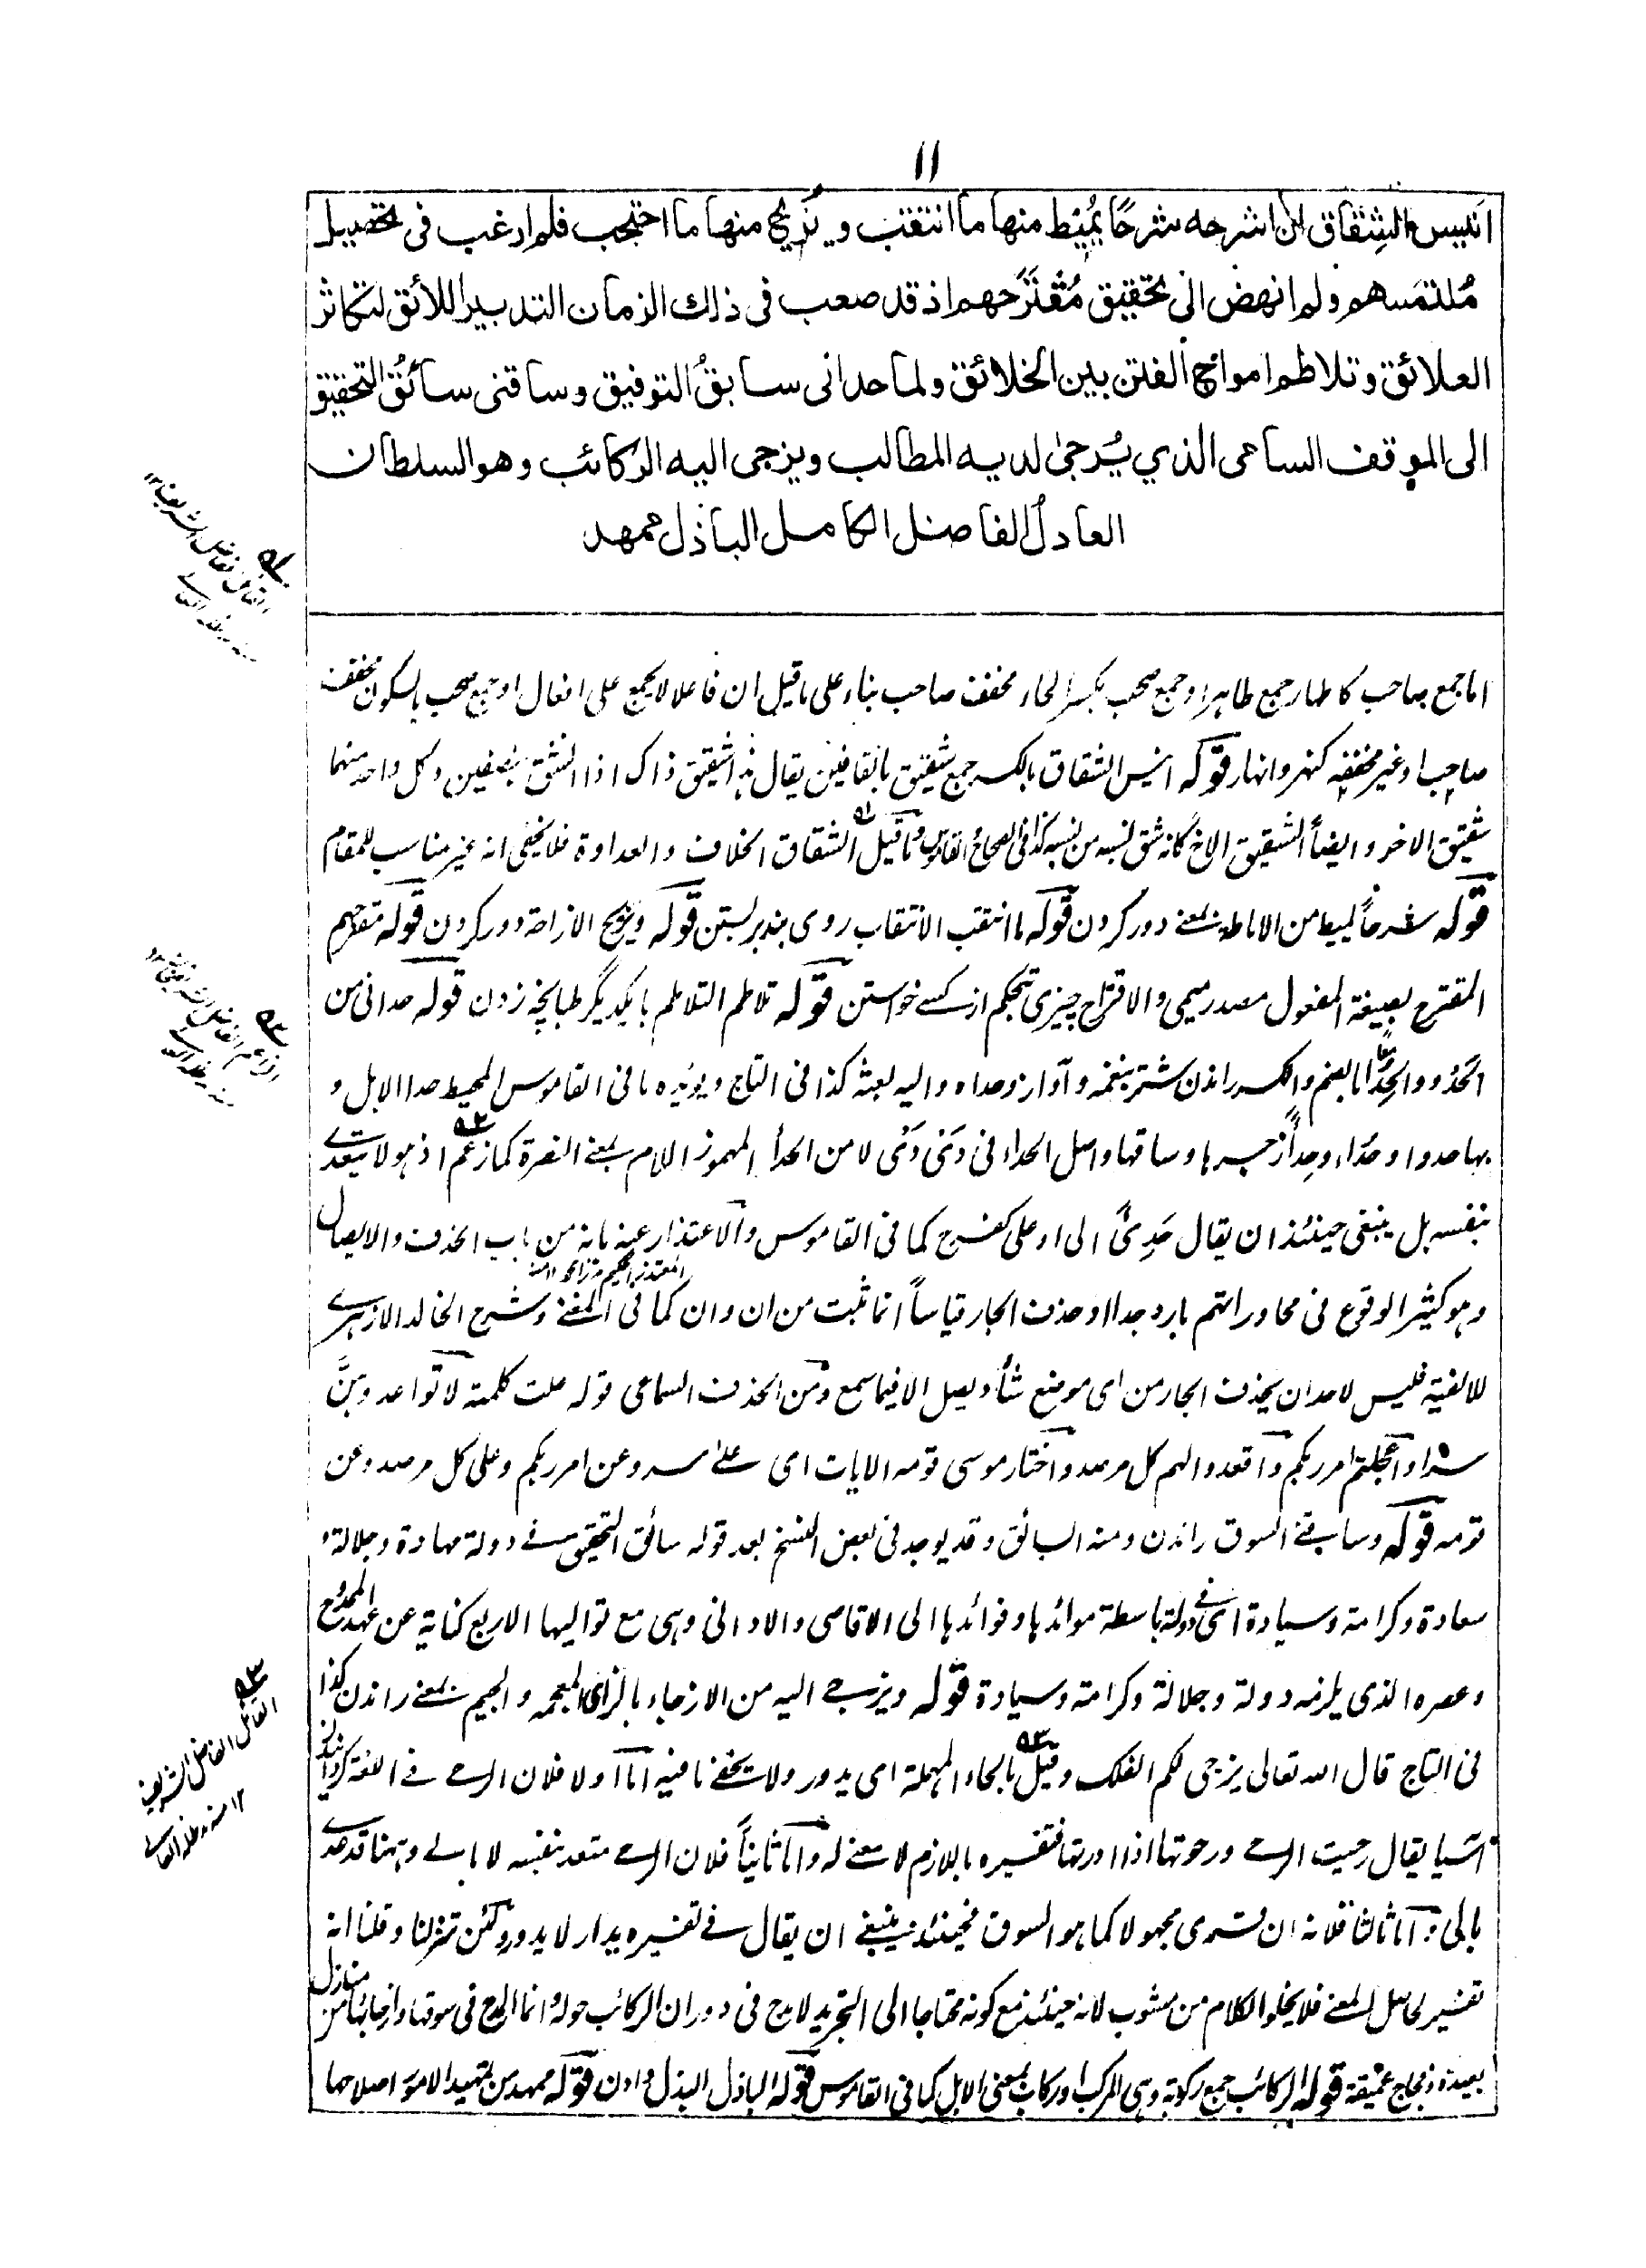 ١١
انيس الشِقاق ان اشرحه شرحًا يُميط منها ما انتقب ويُزيح منها ما احتجب فلم ارغب فى تحصيل
مُلتمَسهم ولم انهض الى تحقيق مُقتَرَحهم اذ قد صعب فى ذلك الزمان التدبير اللائق لتكاثر
العلائق وتلاطم امواج الفتن بين الخلائق ولما حدانى سابقُ التوفيق وساقنى سائقُ التحقيق
الى الموقف السامى الذي يُرجىٰ لديه المطالب ويزجى اليه الركائب وهو السلطان
العادلُ الفاضل الكامل الباذل ممهد
اما جمع صاحب كاطهار جمع طاهر او جمع صحب بكسر الحاء مخفف صاحب بناء على ما قيل ان فاعلا لا يجمع على افعال او جمع صحب بالسكون مخفف
صاحب او غير مخففه كنهر وانهار قوله انيس الشقاق بالكسر جمع شقيق بالقافين يقال هذا شقيق ذاك اذا انشق بنصفين وكل واحد منهما
شقيق الاخر وايضاً الشقيق الاخ كانه شق نسبه من نسبه كذا فى الصحاح والقاموس وما قيل الشقاق الخلاف والعداوة فلا يخفى انه غير مناسب للمقام
قوله شرحاً يميط من الاماطة بمعنى دور كردن قوله ما انتقب الانتقاب روى بند بر بستن قوله ويزيح الازاحة دور كردن قوله مقترحهم
المقترح بصيغة المفعول مصدر ميمى والاقتراح چيزى بتحكم از كسے خواستن قوله تلاطم التلاطم بايكديگر طبانچه زدن قوله حدانى من
الحَدْو والحِداء بالضم والكسر راندن شتر بنغمه وآواز وحداه واليه بعثه كذا فى التاج ويؤيده ما فى القاموس المحيط حدا الابل و
بها حدوا وحُداء وحِداً زجرها وساقها واصل الحداء فى دَىْ دَىْ لا من الحدأ المهموز اللام بمعنى النصرة كما زعم اذ هو لا يتعدى
بنفسه بل ينبغى حينئذ ان يقال حَدِئَ الى او على كفرح كما فى القاموس والاعتذار عنه بانه من باب الحذف والايصال
وهو كثير الوقوع فى محاوراتهم بارد جدا او حذف الجار قياساً انما ثبت من ان وان كما فى المغنى وشرح الخالد الازهرى
للالفية فليس لاحد ان يحذف الجار من اى موضع شاء ويصل الا فيما سمع ومن الحذف السماعى قوله علت كلمة لا تواعدوهنَّ
سرا واعجلتم امر ربكم واقعدوا لهم كل مرصد واختار موسى قومه الايات اى علىٰ سر وعن امر ربكم وعلى كل مرصد وعن
قومه قوله وساقنى السوق راندن ومنه السائق وقد يوجد فى بعض النسخ بعد قوله سائق التحقيق فى دولة مهادة وجلالة
سعادة وكرامة وسيادة اى فى دولة باسطة موائدها وفوائدها الى الاقاصى والادانى وهى مع تواليها الاربع كناية عن عهد الممدوح
وعصره الذى يلزمه دولة وجلالة وكرامة وسيادة قوله ويزجى اليه من الازجاء بالزاى المعجمه والجيم بمعنى راندن كذا
فى التاج قال الله تعالى يزجى لكم الفلك وقيل بالحاء المهملة اى يدور ولا يخفى ما فيه اما اولا فلان الرحى فى اللغة گردانيدن
آسيا يقال رحيت الرحى ورحوتها اذا ادرتها فتفسيره باللازم لا معنى له واما ثانياً فلان الرحى متعد بنفسه لا بالى وههنا قد عدى
بالى واما ثالثا فلانه ان قرى مجهولا كما هو السوق فحينئذ ينبغى ان يقال فى تفسيره يدار لا يدور ولئن تنزلنا وقلنا انه
تفسير لحاصل المعنى فلا يخلو الكلام من مشوب لانه حينئذ مع كونه محتاجا الى التجريد لا مدح فى دوران الركائب حوله وانما المدح فى سوقها وازجائها من منازل
بعيدة وفجاج عميقة قوله الركائب جمع ركوبة وهى المركب او ركاب بمعنى الابل كما فى القاموس قوله الباذل البذل دادن قوله ممهد من تمهيد الامور اصلاحها
القائل الفاضل الشريف
١٢ منه مد ظله العالى